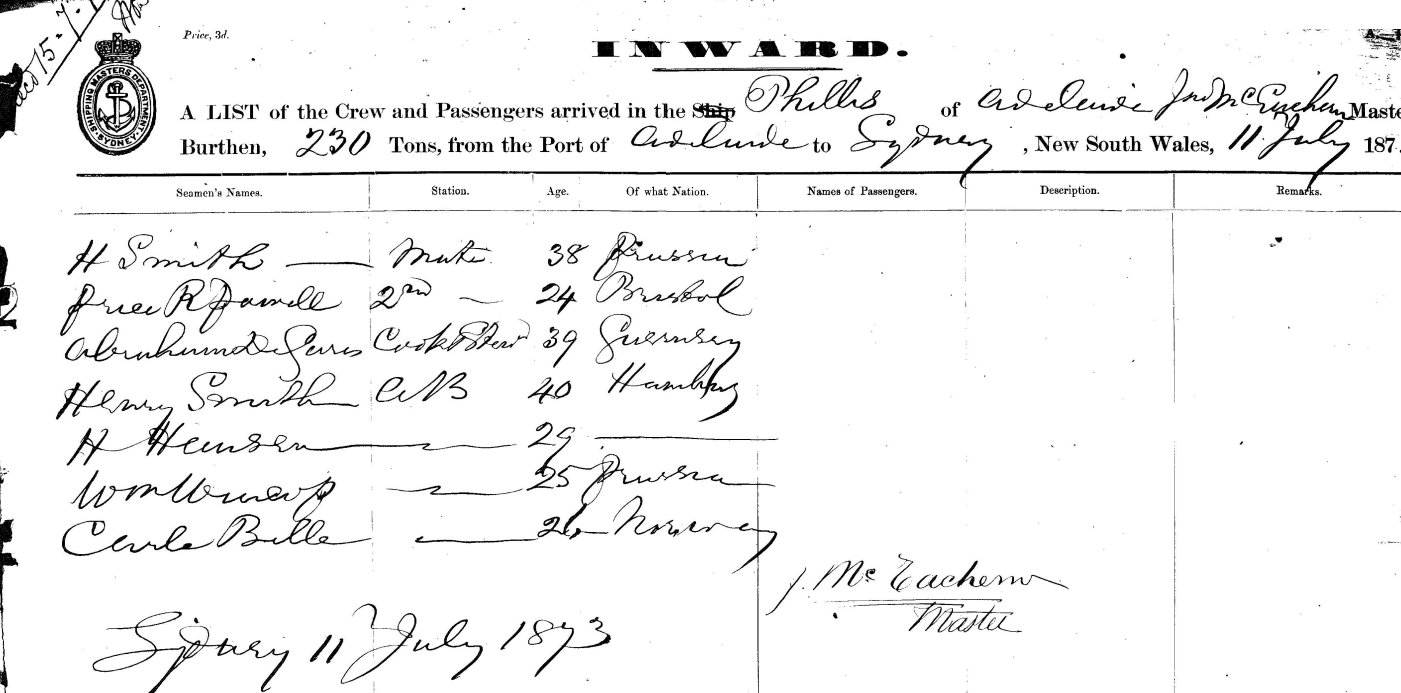 Price, 3d.
INWARD.
SHIPPING MASTERS DEPARTMENT. SYDNEY.
A LIST of the Crew and Passengers arrived in the Ship Phillis of Adelaide Jno McEachern Maste
Burthen, 230 Tons, from the Port of Adelaide to Sydney, New South Wales, 11 July 187
Seamen's Names. Station. Age. Of what Nation. Names of Passengers. Description. Remarks.
H Smith — Mate 38 Prussia
Price R 2nd — 24 Bristol
Abraham De Garis Cook & Stewd 39 Guernsey
Henry Smith AB 40 Hamburg
H Hansen — 29 —
Wm — 25 Prussia
Carle Bille — 26 Norway
J. McEachern
Master
Sydney 11 July 1873